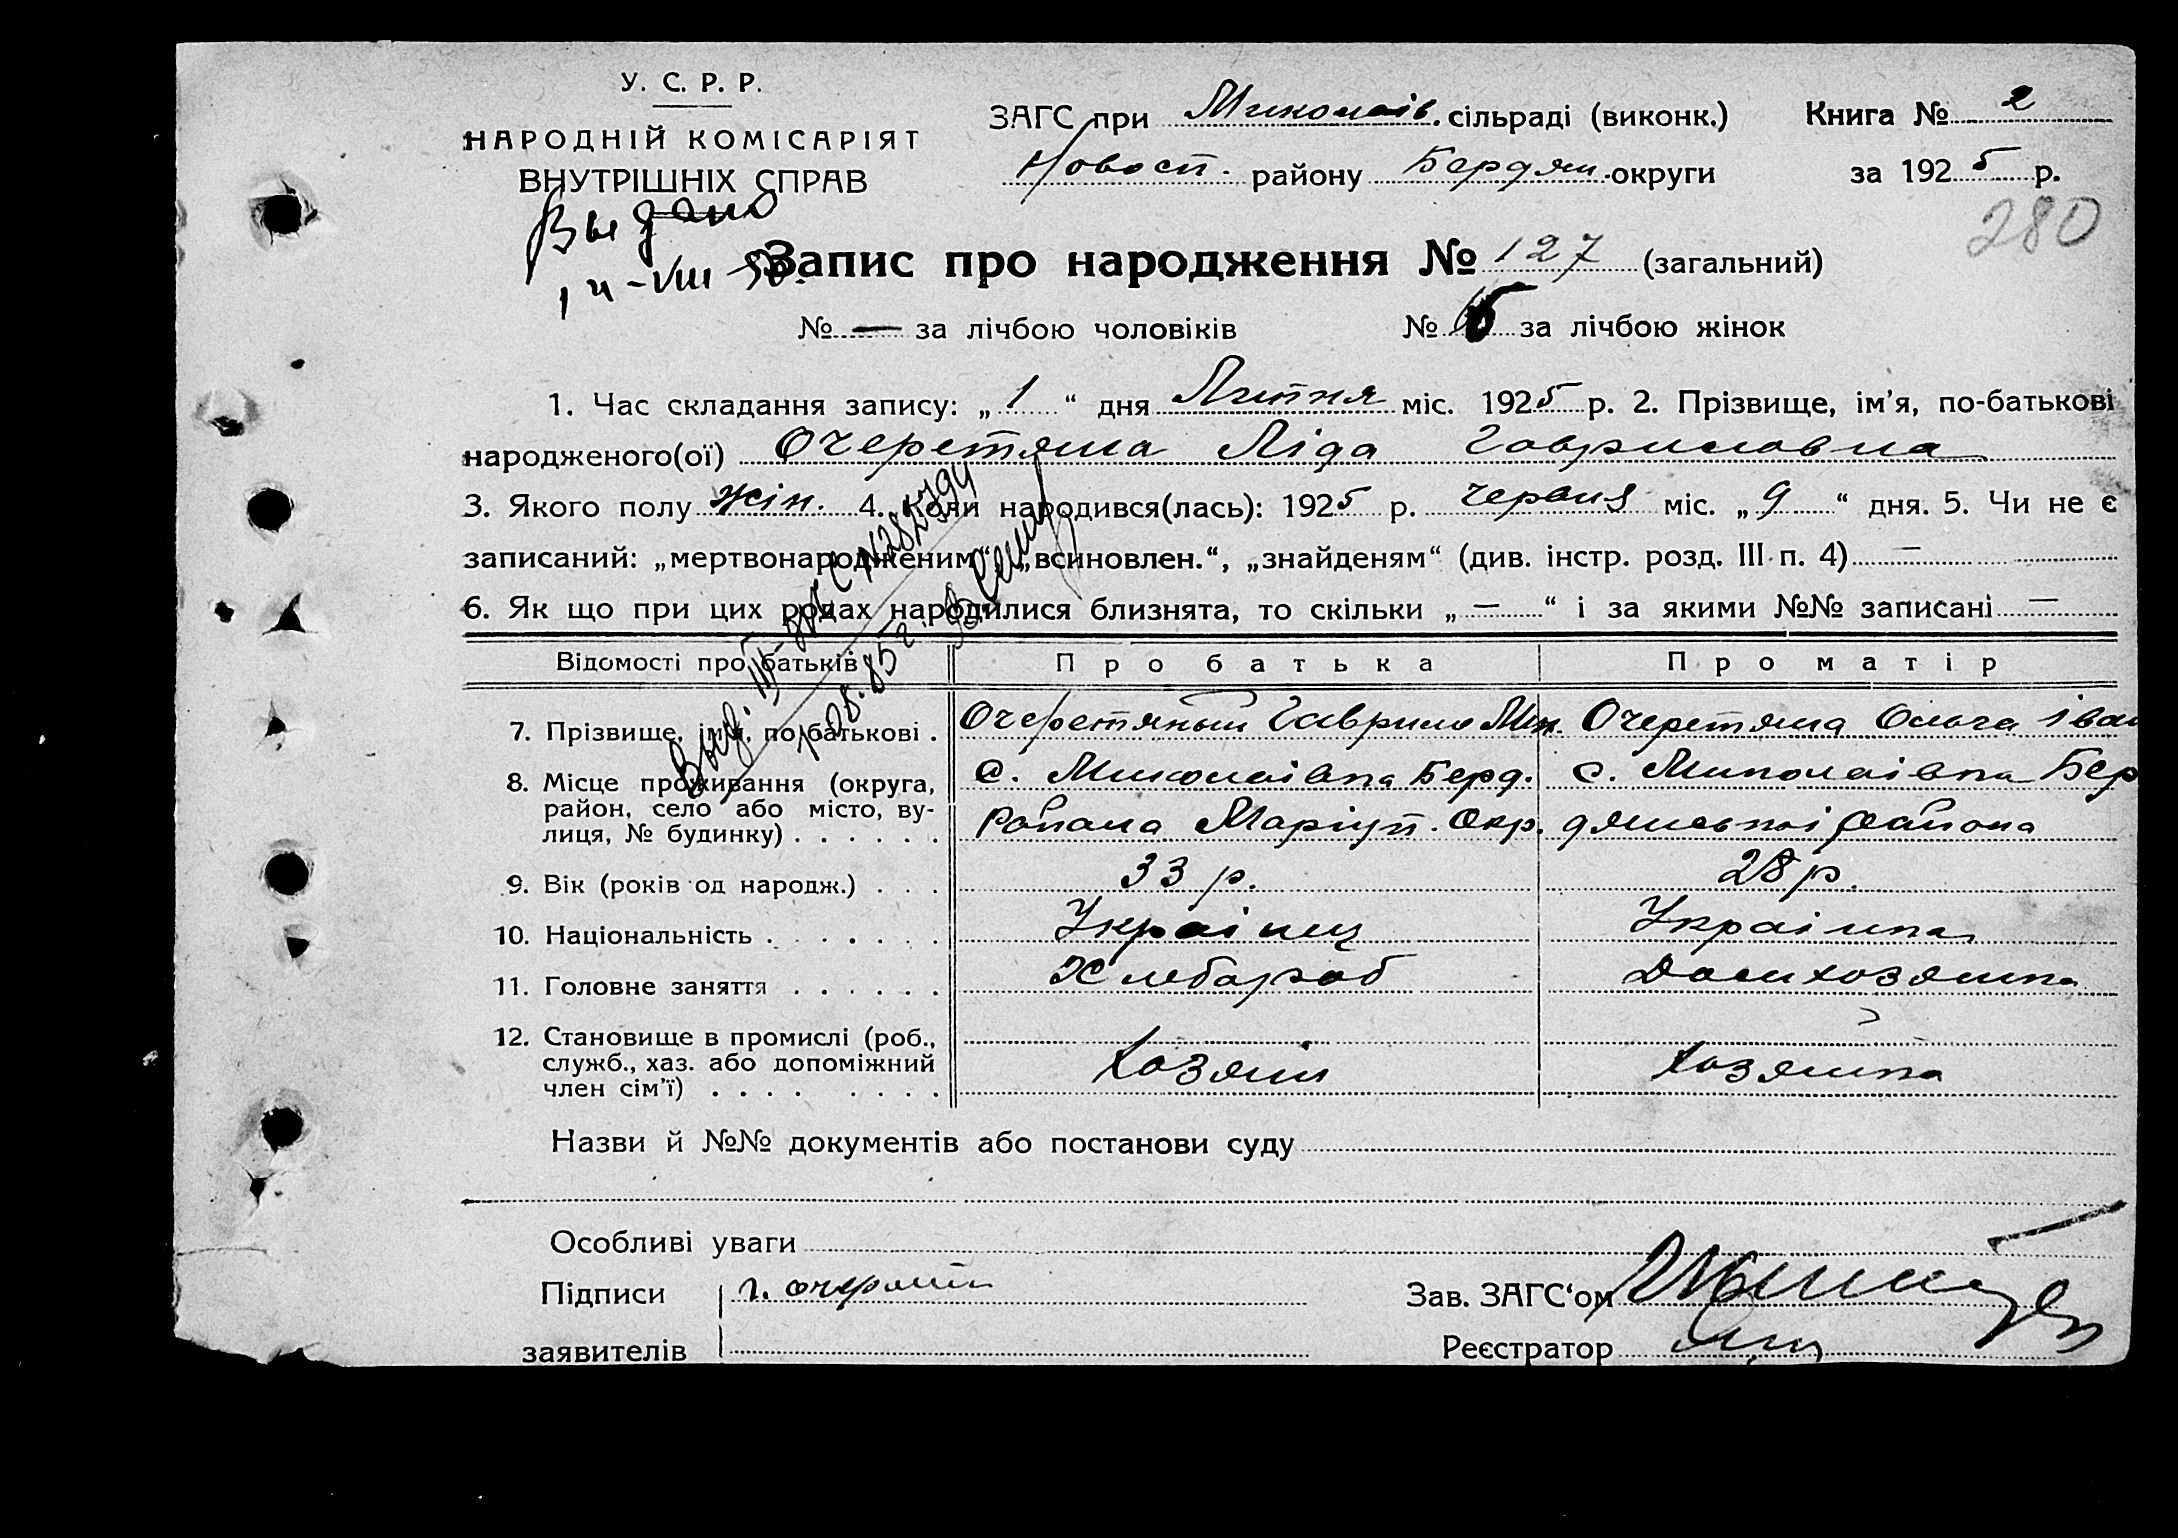 У. С. Р. Р.
НАРОДНІЙ КОМІСАРІЯТ
ВНУТРІШНІХ СПРАВ
ЗАГС при Миколаів. сільраді (виконк.) Книга № 2
Новосп. району Бердян. округи за 1925 р.
280
Выдано
Запис про народження № 127 (загальний)
№ — за лічбою чоловіків № за лічбою жінок
1. Час складання запису: „ 1 “ дня Липня міс. 1925 р. 2. Прізвище, ім’я, по-батькові
народженого(ої) Очеретяна Ліда Гавриловна
3. Якого полу жін. 4. Коли народився(лась): 1925 р. червня міс. „ 9 “ дня. 5. Чи не є
записаний: „мертвонародженим“, „всиновлен.“, „знайденям“ (див. інстр. розд. III п. 4) —
6. Як що при цих родах народилися близнята, то скільки „ — “ і за якими №№ записані —
Відомості про батьків Про батька Про матір
7. Прізвище, ім’я, по батькові . Очеретяный Гаврило Мик. Очеретяна Ольга Іван
8. Місце проживання (округа, с. Миколаівка Берд. с. Миколаівка Бер
район, село або місто, ву-
лиця, № будинку) . . . . . . Района Маріуп. Окр. дянської района
9. Вік (років од народж.) . . . 33 р. 28 р.
10. Національність . . . . . . . Украінец Украінка
11. Головне заняття . . . . . . Хлебароб Домхозяйка
12. Становище в промислі (роб.,
служб., хаз. або допоміжний Хозяин Хозяйка
член сім’ї) . . . . . . . .
Назви й №№ документів або постанови суду
Особливі уваги
Підписи Г. Зав. ЗАГС‘ом
заявителів Реєстратор